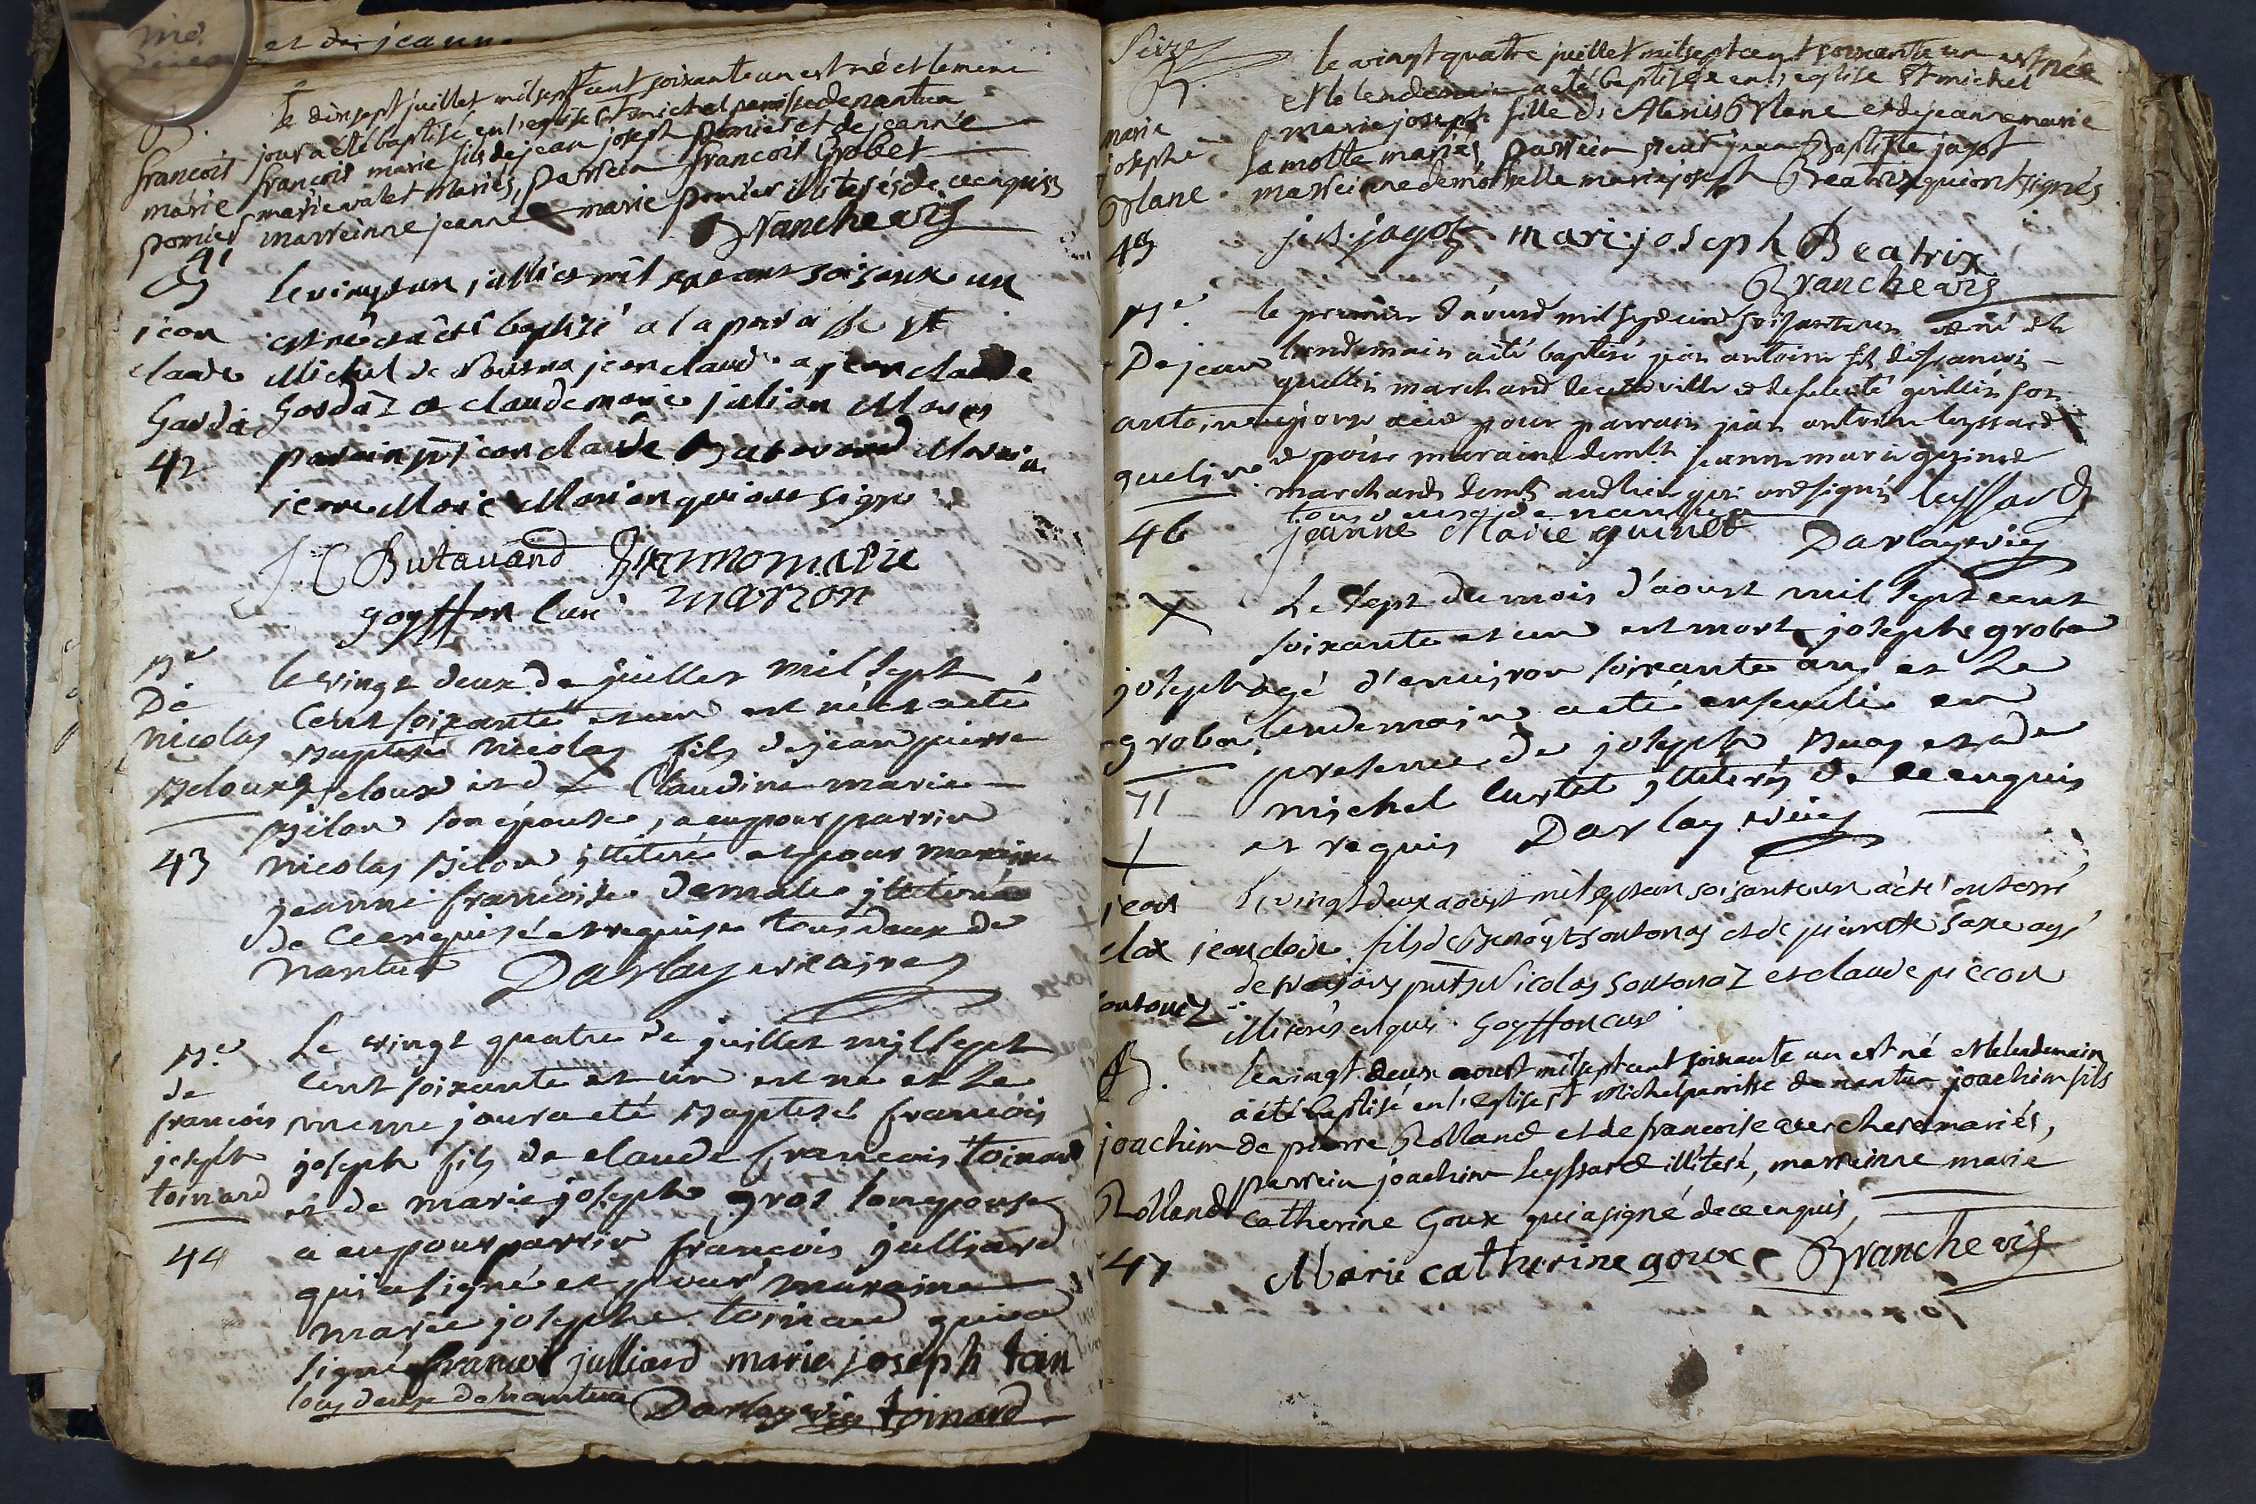 et de jeanne
B.
francois
marie
pomier
41
le dixsept juillet mil sept cent soixante un est né et le meme
jour a été baptisé en l'eglise St michel parroisse de nantua
francois marie fils de jean joseph pomier et de jeanne
marie valet mariés, parrein francois Grobet
marreinne jeanne marie pomier illiterés de ce enquis
Branche vic
B
jean
claude
Gardaz
42
le vingt un juillet mil sept cent soisente un
est né et a été baptizé a la paroisse St
Michel de Nantua jean claude a jean claude
Gardaz et claude marie julian Mariés
parain jean claude Butavand Maraine
jeane Marie Marion qui ont signé
J C Butavand Jeannemarie
goyffon curé marion
B.e
De
nicolas
Beloux
43
le vingt deux de juillet mil sept
Cent soixante et un est né et a eté
Baptisé nicolas fils de jean pierre
Beloux et de Claudine marie
pilan son épouse, a eu pour parrin
nicolas pilon jlliteré et pour maraine
jeanne francoise jlliterée
de ce enquise et requise tous deux de
nantua Darlay vicaire
B.e
de
francois
joseph
toinard
44
Le vingt quatre de juillet mil sept
cent soixante et un est né et le
meme jour a eté Baptisé francois
joseph fils de claude francois toinard
et de marie josephe gros son epouse
a eu pour parrin francois julliard
qui a signé et pour maraine
marie josephe toinard qui a
signé francois julliard marie joseph toin
tous deux de nantua Darlay vic toinard
Seize
B.
marie
josephe
Orlane
45
le vingt quatre juillet mil sept cent soixante un est née
et le lendemain a été baptisée en l'eglise St michel
marie joseph fille d'Alexis Orlane et de jeanne marie
lamotte mariés, parrein sieur jean Baptiste jagot
marreinne demoiselle marie joseph Beatrix qui ont signés
j.b. jagot mari joseph Beatrix
Branche vic
B.e
De jean
antoine
46
le premier d'aoust mil sept cent soisante un est né et le
lendemain a eté baptisé jean antoine fils de francois
marchand de cette ville et de guillin son
pour parrain jean antoine leyssard
maraine jeanne marie guinet
marchands qui ont signés leyssard
tous deux de nantua
jeanne Marie guinet Darlay vic
+
joseph
groba
11
Le sept du mois d'aoust mil sept cent
soixante et un est mort joseph groba
agé d'environ soixante ans et le
lendemain a eté enseveli en
presence de joseph et de
michel curtet jlliterés de ce enquis
et requis Darlay vic
+
jean
clax
sontonaz
le vingt deux aoust mil sept cent soisante un a été enterré
jean fils de Benoyt sontonas et de pierrette agé
de ans Nicolas sontonaz et claude
illiterés enquis. Goyffon curé
B.
joachim
Rolland
47
le vingt deux aoust mil sept cent soixante un est né et le lendemain
a été baptisé en l'eglise St Michel parroisse de nantua joachim fils
de pierre Rolland et de francoise mariés,
parrein joachim leyssard illiteré, marreinne marie
catherine Goux qui a signé de ce enquis,
Marie catherine goux Branche vic